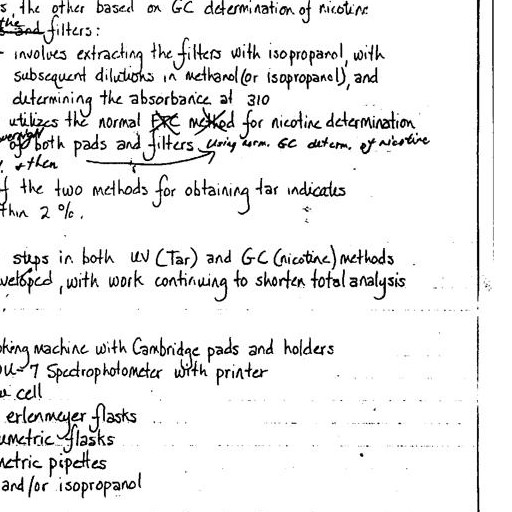 s, the other based on GC determination of nicotine
the
and filters:
involves extracting the filters with isopropanol, with
subsequent dilutions in methanol (or isopropanol), and
determining the absorbance at 310
utilizes the normal method for nicotine determination
of both pads and filters using norm. GC determ. of nicotine
& then
f the two methods for obtaining tar indicates
thin 2 %.
steps in both UV (Tar) and GC (nicotine) methods
veloped, with work continuing to shorten total analysis
oking machine with Cambridge pads and holders
DU-7 Spectrophotometer with printer
cell
erlenmeyer flasks
umetric flasks
metric pipettes
and/or isopropanol